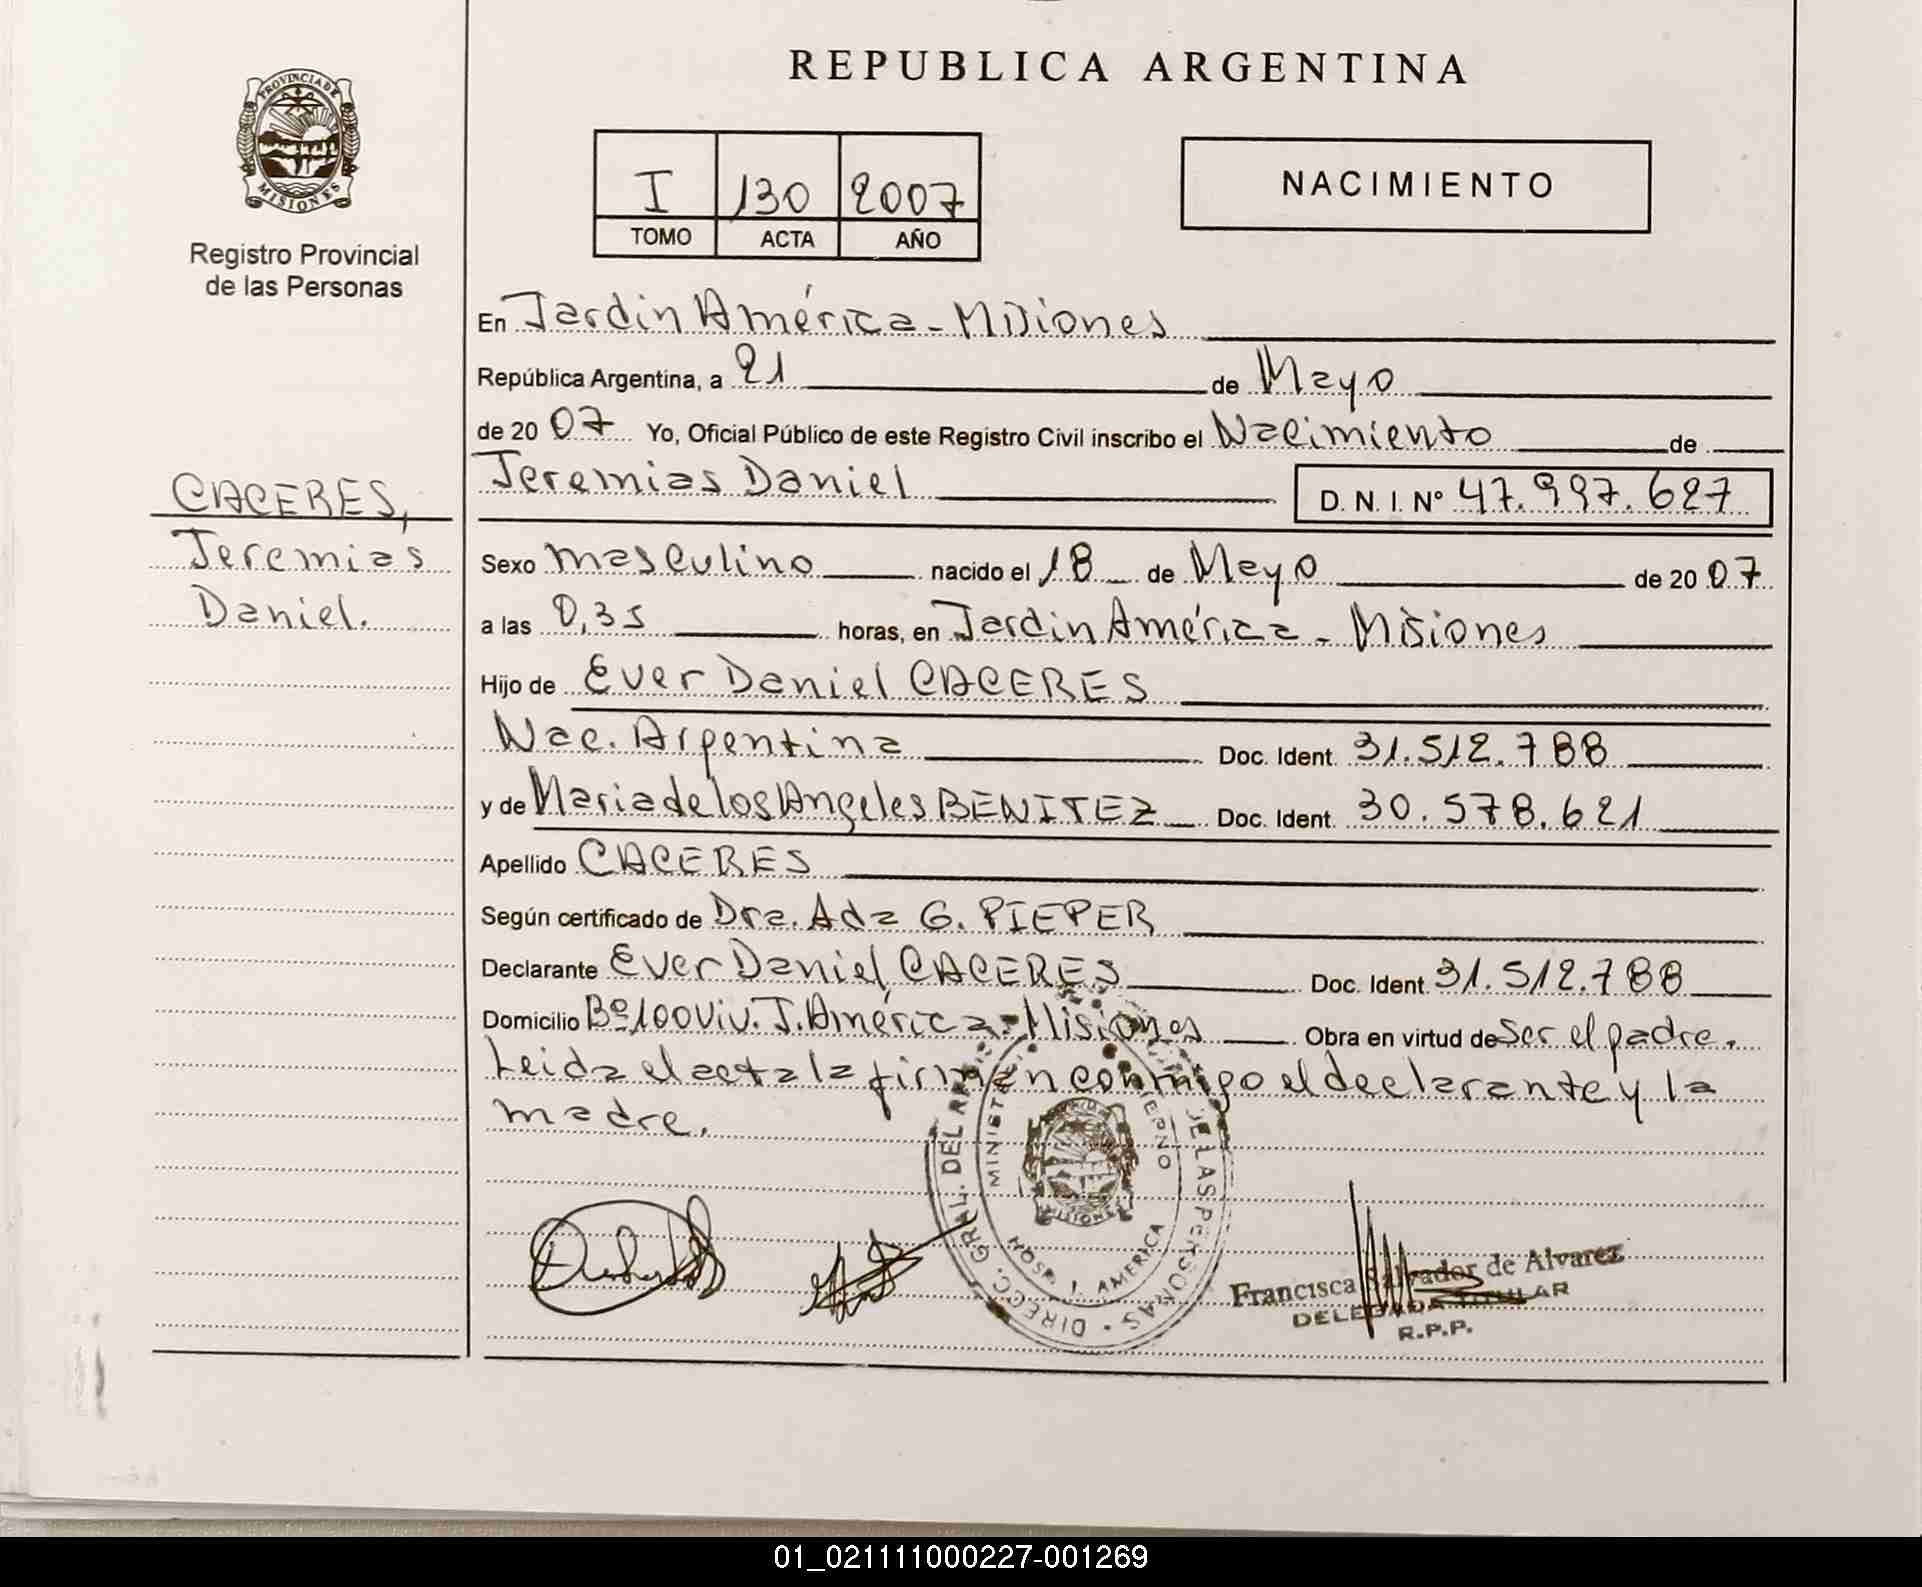 REPUBLICA ARGENTINA
PROVINCIA DE MISIONES
Registro Provincial
de las Personas
I 130 2007
TOMO ACTA AÑO
NACIMIENTO
En Jardin América - Misiones
República Argentina, a 21 de Mayo
de 20 07 Yo, Oficial Público de este Registro Civil inscribo el Nacimiento de
Jeremias Daniel D. N. I. Nº 47.997.627
CACERES,
Jeremias
Daniel.
Sexo masculino nacido el 18 de Mayo de 20 07
a las 0,35 horas, en Jardin América - Misiones
Hijo de Ever Daniel CACERES
Nac. Argentina Doc. Ident. 31.512.788
y de Maria de los Angeles BENITEZ Doc. Ident. 30.578.621
Apellido CACERES
Según certificado de Dra. Ada G. PIEPER
Declarante Ever Daniel CACERES Doc. Ident. 31.512.788
Domicilio Bº 100 Viv. J. América - Misiones Obra en virtud de ser el padre.
Leida el acta la firman conmigo el declarante y la
madre.
DIRECC. GRAL. DEL DE LAS PERSONAS
HOSP. J. AMERICA
MISIONES
Francisca Salvador de Alvarez
DELEGADA TITULAR
R.P.P.
01_021111000227-001269